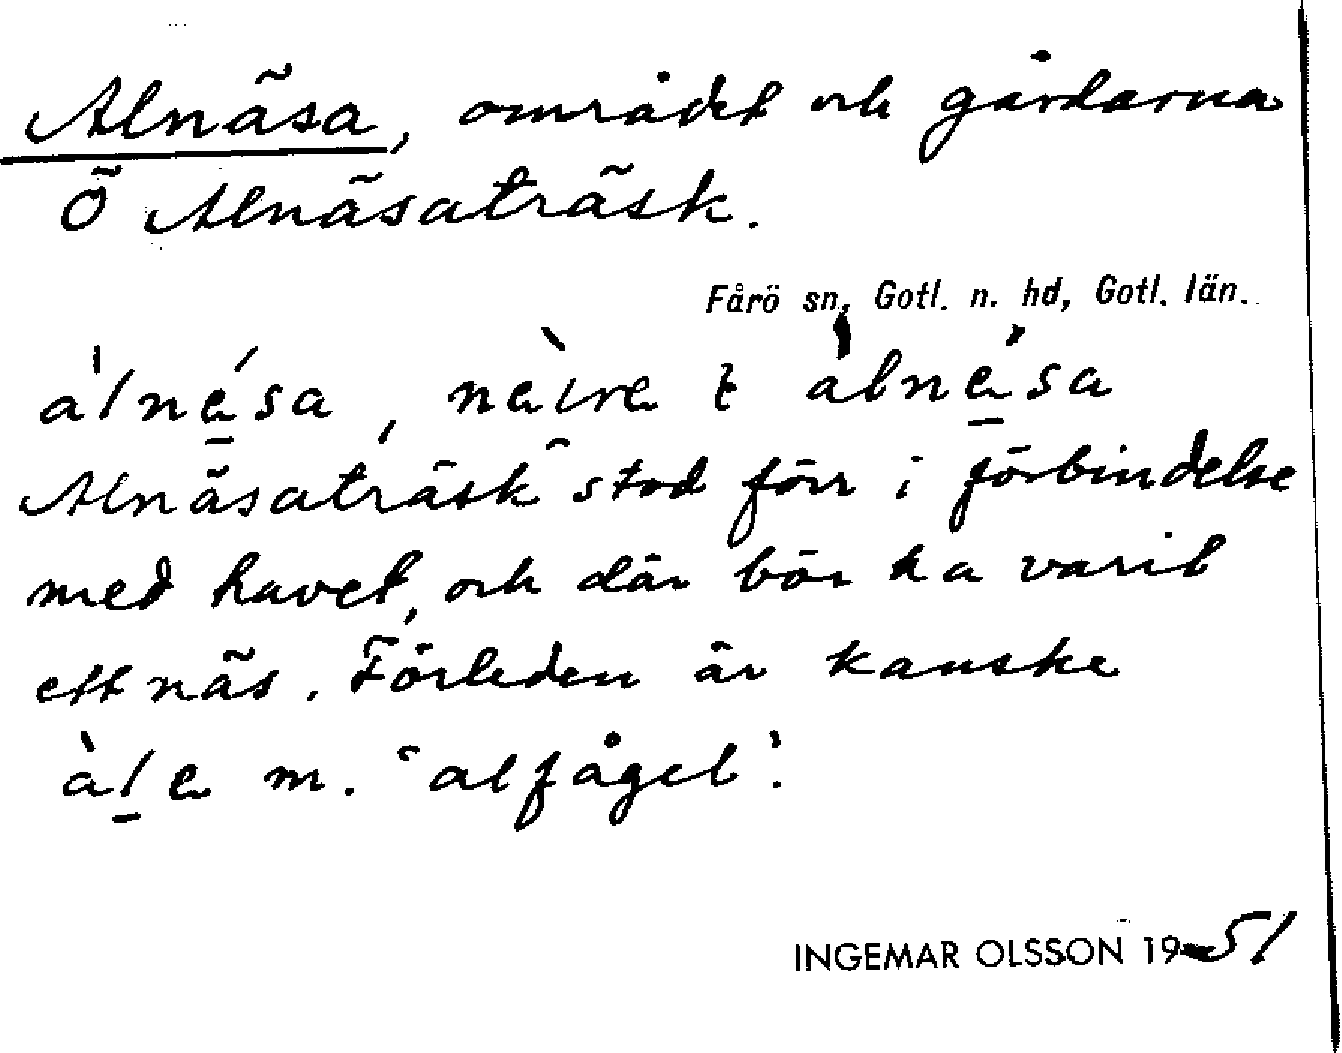 Alnäsa, området och gårdarna
Ö Alnäsaträsk.
Fårö sn, Gotl. n. hd, Gotl. län.
a'lnésa, ałnésa
Alnäsaträsk stod förr i förbindelse
med havet, och där bör ha varit
ett näs. Förleden är kanske
àle m. "alfågel".
INGEMAR OLSSON 1951